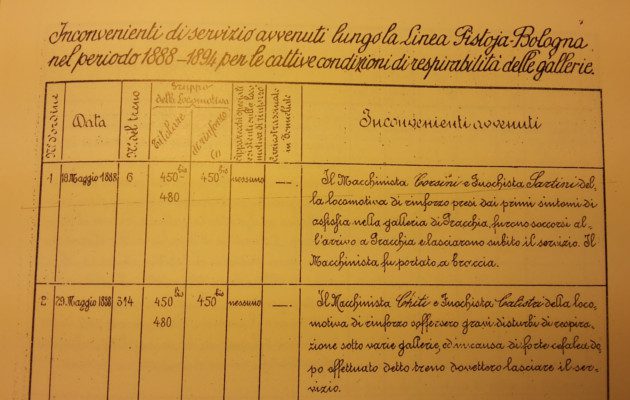 Inconvenienti di servizio avvenuti lungo la Linea Pistoja-Bologna
nel periodo 1888-1894 per le cattive condizioni di respirabilità delle gallerie.
N° d'ordine
Data
N° del treno
Gruppo
della Locomotiva
titolare
di rinforzo
(1)
Apparecchi speciali
esistenti sulla loco
motiva di rinforzo
in
Inconvenienti avvenuti
1
19. Maggio 1888
6
450 bis
480
450 bis
nessuno
—
Il Macchinista Corsini e Fuochista Sartini del-
la locomotiva di rinforzo presi dai primi sintomi di
asfissia nella galleria di Pracchia, furono soccorsi al-
l'arrivo a Pracchia e lasciarono subito il servizio. Il
Macchinista fu portato, a braccia.
2
29. Maggio 1888
314
450 bis
480
450 bis
nessuno
—
Il Macchinista Chiti e Fuochista Calistri della loco-
motiva di rinforzo soffersero gravi disturbi di respira-
zione sotto varie gallerie, ed in causa di forte cefalea do-
po effettuato detto treno dovettero lasciare il ser-
vizio.